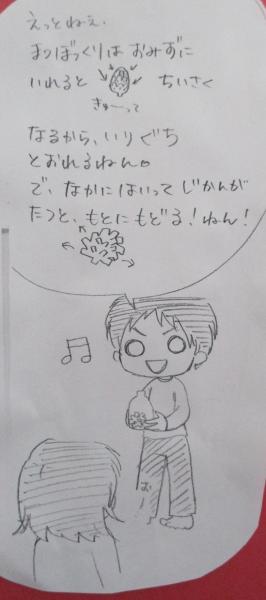 えっとねぇ、
まつぼっくりは おみずに
いれると ちいさく
きゅーって
なるから、いりぐち
とおれるねん。
で、なかにはいって じかんが
たつと、もとにもどる!ねん!